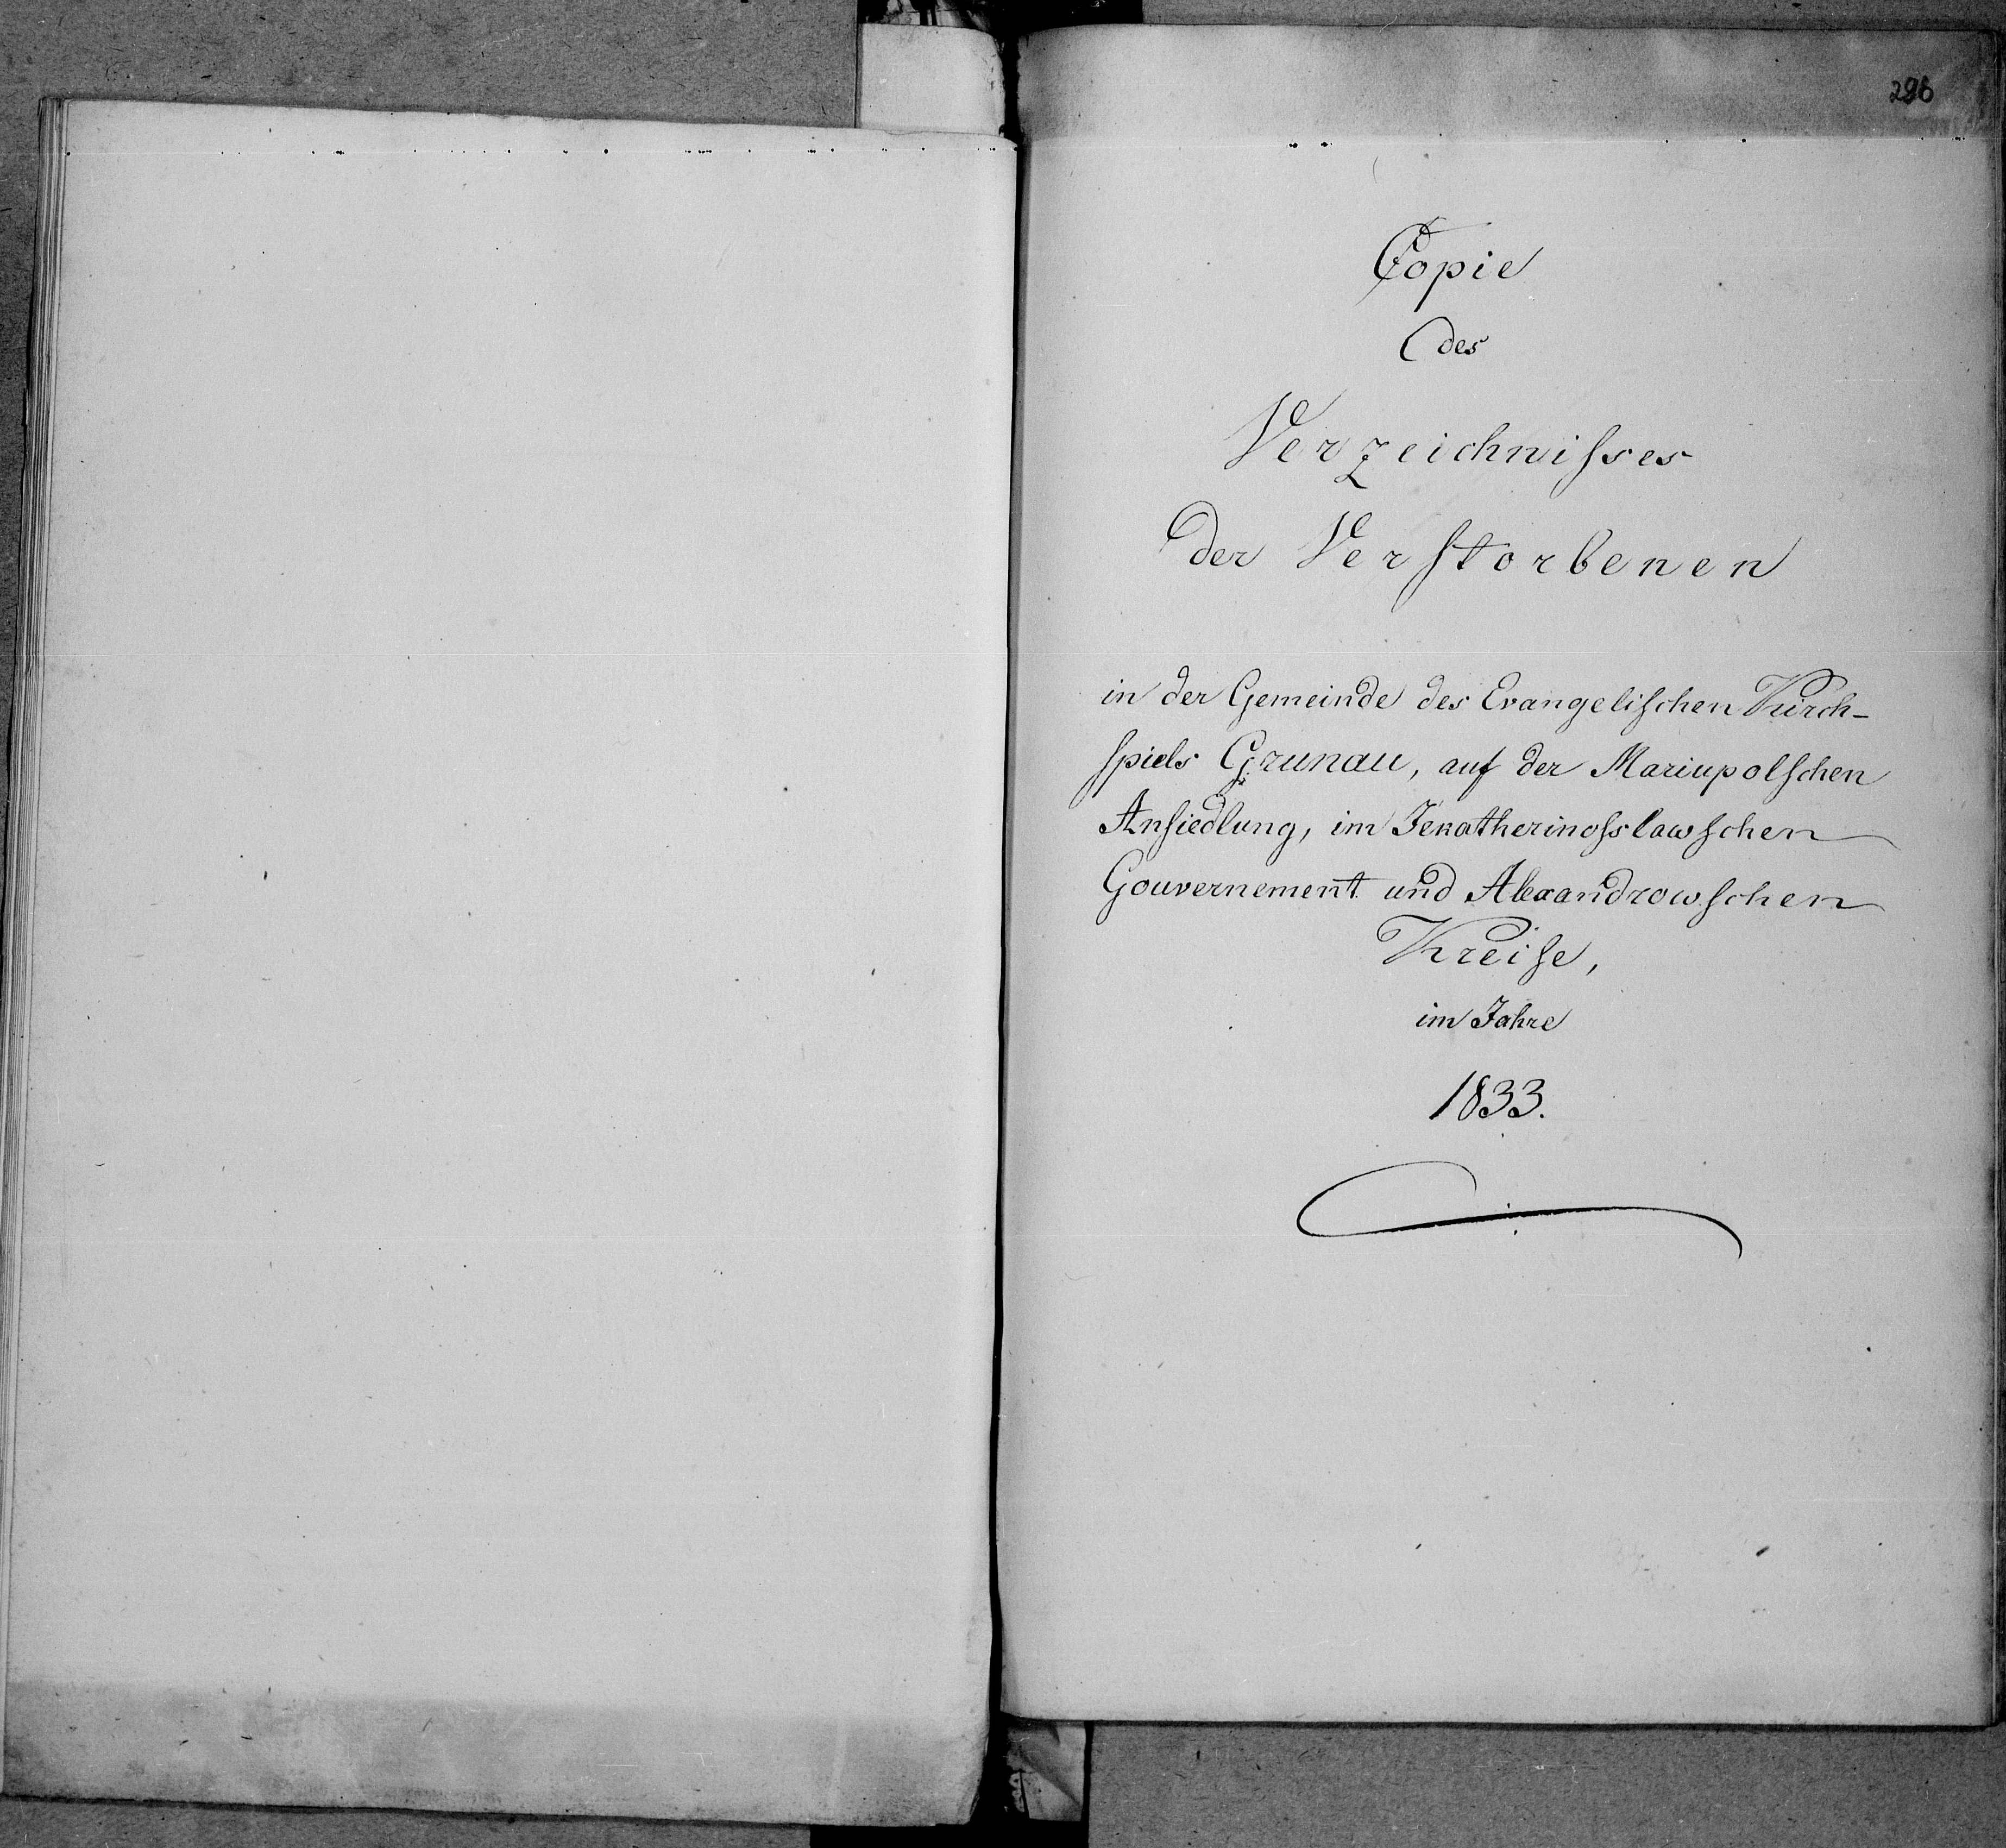 296
Copie
des
Verzeichnisses
der Verstorbenen
in der Gemeinde des Evangelischen Kirch-
spiels Grunau, auf der Mariupolschen
Ansiedlung, im Jekatherinosslawschen
Gouvernement und Alexandrowschen
Kreise,
im Jahre
1833.